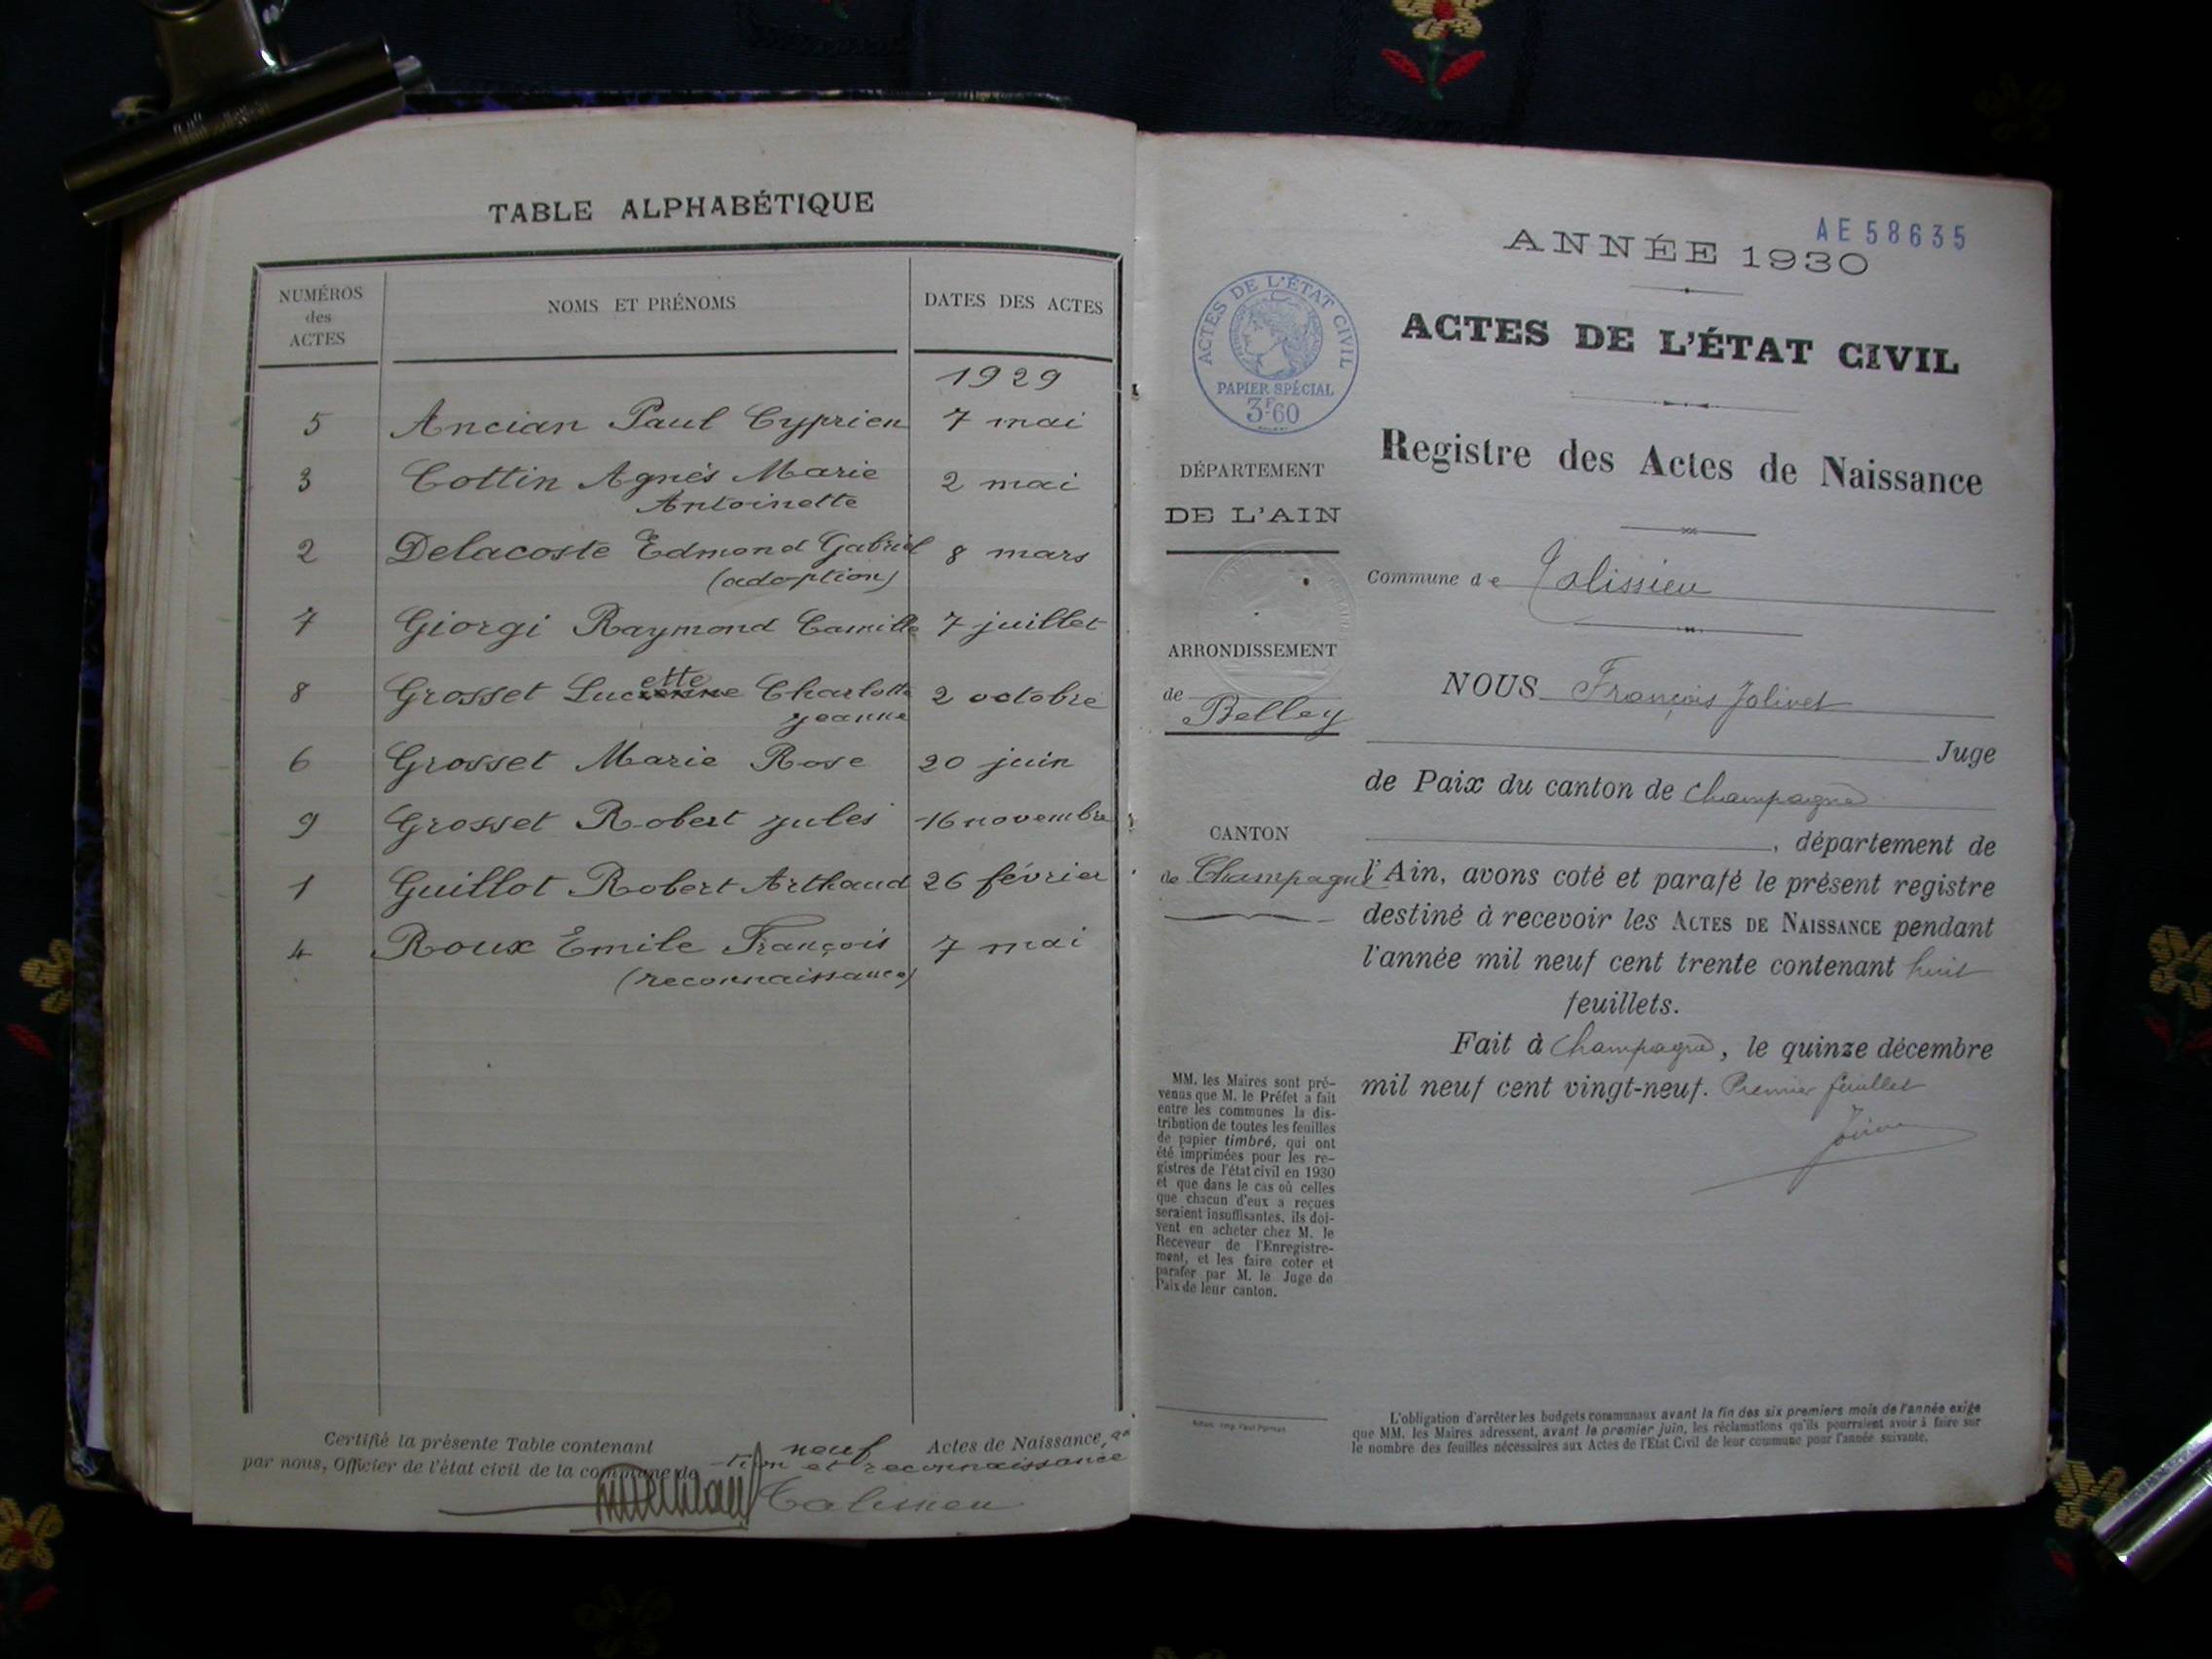 TABLE ALPHABÉTIQUE
NUMÉROS
des
ACTES
NOMS ET PRÉNOMS
DATES DES ACTES
1929
5 Ancian Paul Cyprien 7 mai
3 Cottin Agnès Marie 2 mai
Antoinette
2 Delacoste Edmond Gabriel 8 mars
(adoption)
7 Giorgi Raymond Camille 7 juillet
ette
8 Grosset Lucienne Charlotte 2 octobre
Jeanne
6 Grosset Marie Rose 20 juin
9 Grosset Robert Jules 16 novembre
1 Guillot Robert Arthaud 26 février
4 Roux Emile François 7 mai
(reconnaissance)
Certifié la présente Table contenant neuf Actes de Naissance,
par nous, Officier de l'état civil de la commune de tion et reconnaissance
Talissieu
AE 58635
ANNÉE 1930
ACTES DE L'ÉTAT CIVIL
PAPIER SPÉCIAL
3F.60
ACTES DE L'ÉTAT CIVIL
Registre des Actes de Naissance
DÉPARTEMENT
DE L'AIN
Commune de Talissieu
ARRONDISSEMENT
de
Belley
NOUS François Jolivet
Juge
de Paix du canton de Champagne
CANTON
de Champagne
, département de
l'Ain, avons coté et parafé le présent registre
destiné à recevoir les ACTES DE NAISSANCE pendant
l'année mil neuf cent trente contenant huit
feuillets.
Fait à Champagne, le quinze décembre
mil neuf cent vingt-neuf. Premier feuillet
MM. les Maires sont pré-
venus que M. le Préfet a fait
entre les communes la dis-
tribution de toutes les feuilles
de papier timbré, qui ont
été imprimées pour les re-
gistres de l'état civil en 1930
et que dans le cas où celles
que chacun d'eux a reçues
seraient insuffisantes, ils doi-
vent en acheter chez M. le
Receveur de l'Enregistre-
ment, et les faire coter et
parafer par M. le Juge de
Paix de leur canton.
L'obligation d'arrêter les budgets communaux avant la fin des six premiers mois de l'année exige
que MM. les Maires adressent, avant le premier juin, les réclamations qu'ils pourraient avoir à faire sur
le nombre des feuilles nécessaires aux Actes de l'État Civil de leur commune pour l'année suivante.